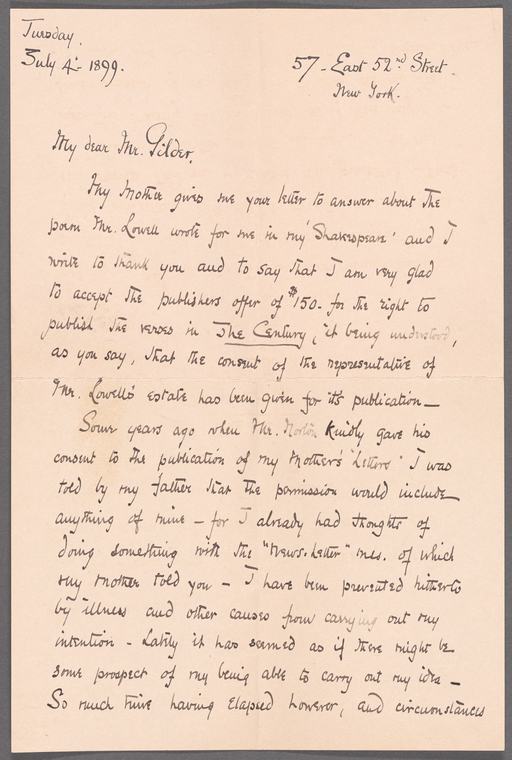 Tuesday.
July 4th 1899.
57 - East 52nd Street.
New York.
My dear Mr. Gilder,
My Mother gives me your letter to answer about the
poem Mr. Lowell wrote for me in my 'Shakespeare' and I
write to thank you and to say that I am very glad
to accept the publishers offer of $150- for the right to
publish the verses in The Century, it being understood,
as you say, that the consent of the representative of
Mr. Lowell's estate has been given for its publication—
Some years ago when Mr. Norton kindly gave his
consent to the publication of my Mother's "Letters" I was
told by my father that the permission would include
anything of mine — for I already had thoughts of
doing something with the "News-Letter" mss. of which
my Mother told you — I have been prevented hitherto
by illness and other causes from carrying out my
intention - Lately it has seemed as if there might be
some prospect of my being able to carry out my idea —
So much time having elapsed however, and circumstances